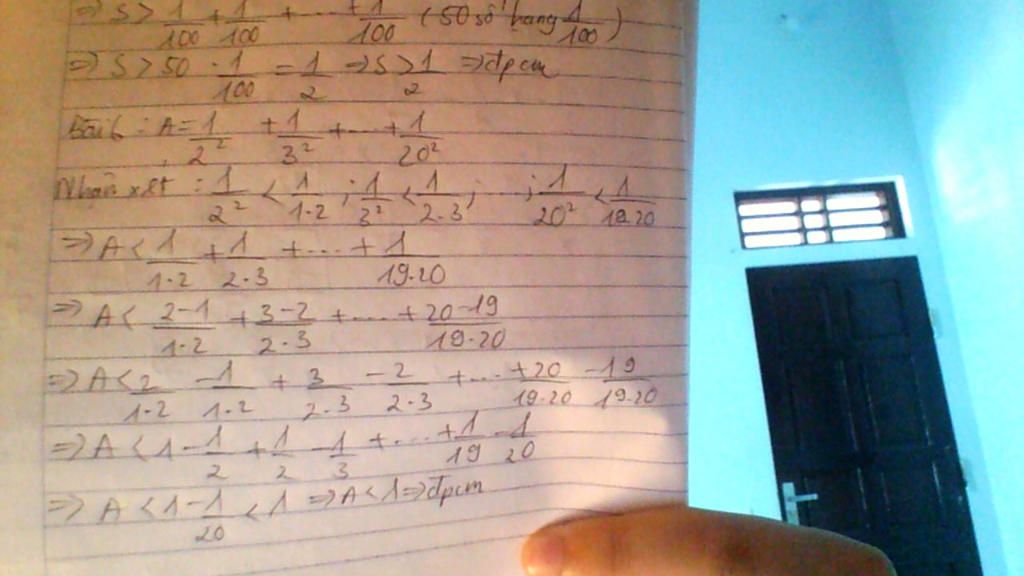 => S > 1/100 + 1/100 + .... + 1/100 (50 số hạng 1/100)
=> S > 50 . 1/100 = 1/2 => S > 1/2 => đpcm
Bài 6 : A = 1/2² + 1/3² + ... + 1/20²
Nhận xét : 1/2² < 1/1.2 ; 1/3² < 1/2.3 ; ... ; 1/20² < 1/19.20
=> A < 1/1.2 + 1/2.3 + .... + 1/19.20
=> A < 2-1/1.2 + 3-2/2.3 + .... + 20-19/19.20
=> A < 2/1.2 - 1/1.2 + 3/2.3 - 2/2.3 + .... + 20/19.20 - 19/19.20
=> A < 1 - 1/2 + 1/2 - 1/3 + .... + 1/19 - 1/20
=> A < 1 - 1/20 < 1 => A < 1 => đpcm